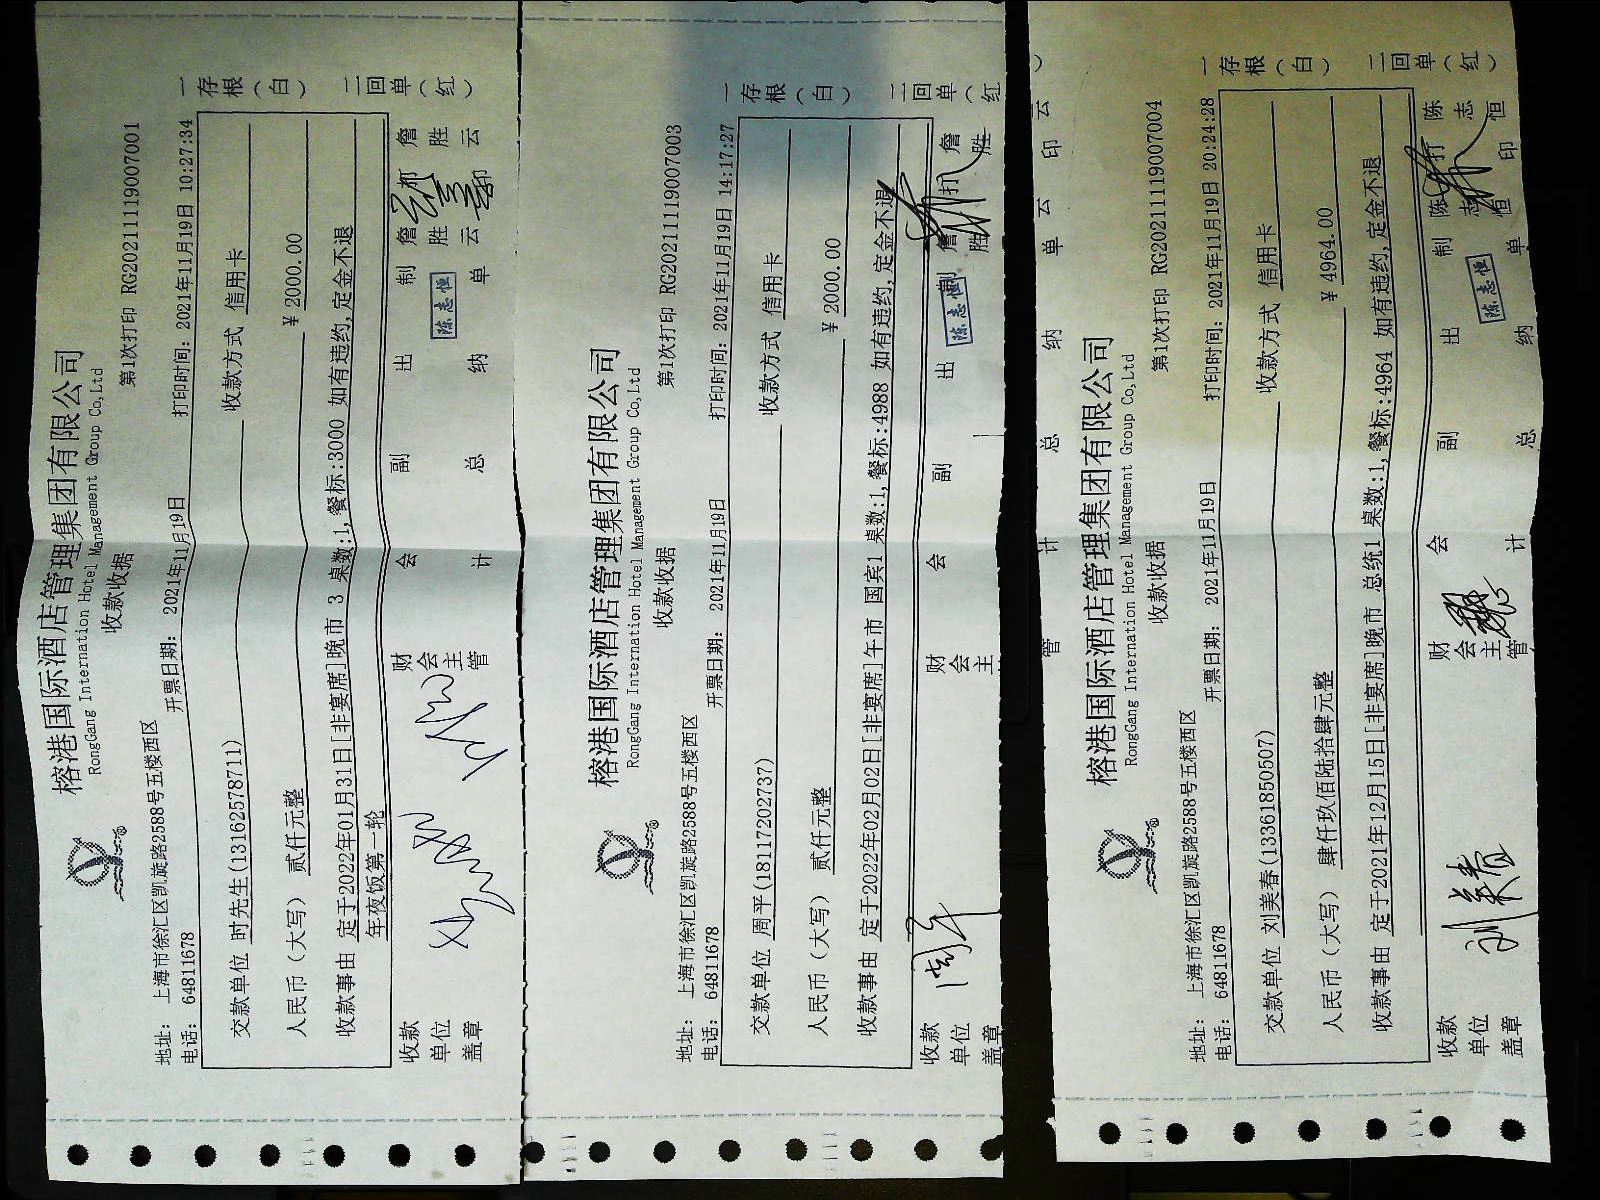 榕港国际酒店管理集团有限公司
RongGang Internation Hotel Management Group Co,Ltd
收款收据
第1次打印 RG20211119007001
地址: 上海市徐汇区凯旋路2588号五楼西区
电话: 64811678
开票日期: 2021年11月19日
打印时间: 2021年11月19日 10:27:34
交款单位 时先生(13162578711)
收款方式 信用卡
人民币(大写) 贰仟元整
¥ 2000.00
收款事由 定于2022年01月31日[非宴席]晚市 3 桌数:1,餐标:3000 如有违约,定金不退
年夜饭第一轮
一存根(白)
二回单(红)
收款单位盖章
财会主管
会计
副总
出纳
陈志恒
制单
詹胜云
打印
詹胜云
榕港国际酒店管理集团有限公司
RongGang Internation Hotel Management Group Co,Ltd
收款收据
第1次打印 RG20211119007003
地址: 上海市徐汇区凯旋路2588号五楼西区
电话: 64811678
开票日期: 2021年11月19日
打印时间: 2021年11月19日 14:17:27
交款单位 周平(18117202737)
收款方式 信用卡
人民币(大写) 贰仟元整
¥ 2000.00
收款事由 定于2022年02月02日[非宴席]午市 国宾1 桌数:1,餐标:4988 如有违约,定金不退
一存根(白)
二回单(红
收款单位盖章
周平
财会主
会
副
出
陈志恒
制
詹胜
打
詹胜
管
计
总
纳
单
云
印
云
榕港国际酒店管理集团有限公司
RongGang Internation Hotel Management Group Co,Ltd
收款收据
第1次打印 RG20211119007004
地址: 上海市徐汇区凯旋路2588号五楼西区
电话: 64811678
开票日期: 2021年11月19日
打印时间: 2021年11月19日 20:24:28
交款单位 刘美春(13361850507)
收款方式 信用卡
人民币(大写) 肆仟玖佰陆拾肆元整
¥ 4964.00
收款事由 定于2021年12月15日[非宴席]晚市 总统1 桌数:1,餐标:4964 如有违约,定金不退
一存根(白)
二回单(红)
收款单位盖章
刘美春
财会主管
会计
副总
出纳
陈志恒
制单
陈志恒
打印
陈志恒